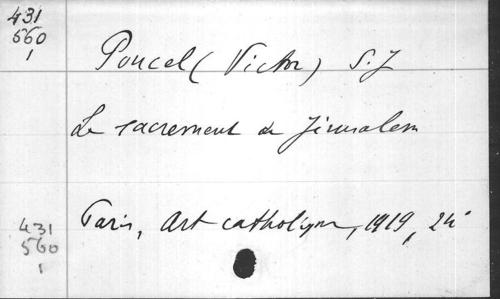 431
560
1
Poucel (Victor) S.J
Le sacrement de Jérusalem
Paris, Art catholique, 1919, 24°
431
560
1